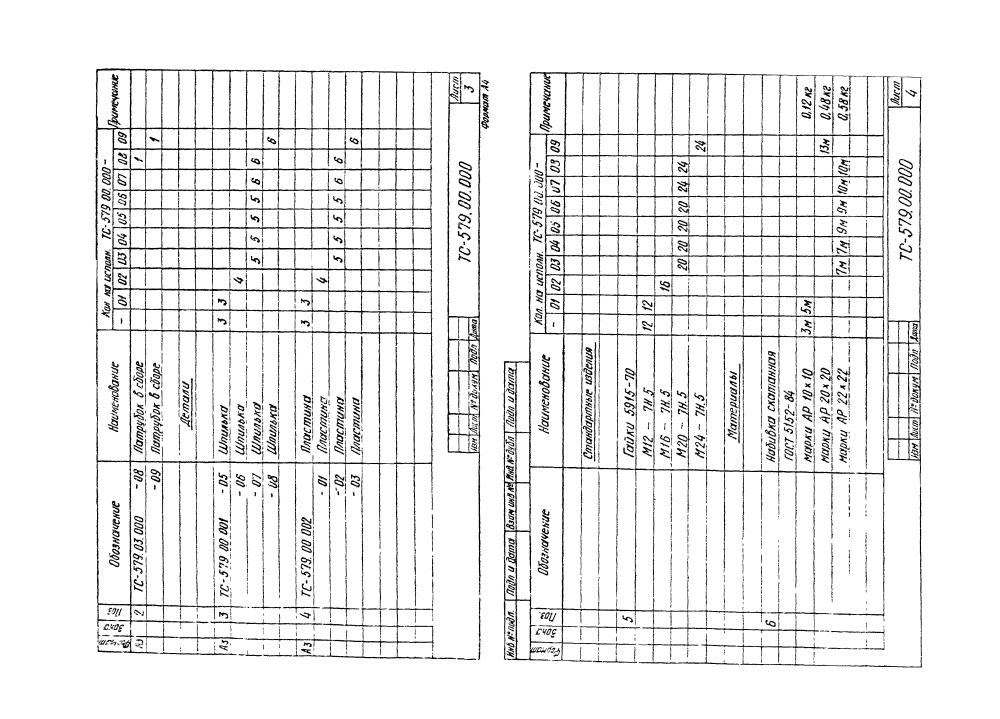 Формат Зона Поз. Обозначение Наименование Кол. на исполн. ТС-579.00.000 - Примечание
- 01 02 03 04 05 06 07 08 09
А3 2 ТС-579.03.000 - 08 Патрубок в сборе 1
- 09 Патрубок в сборе 1
Детали
А3 3 ТС-579.00.001 - 05 Шпилька 3 3
- 06 Шпилька 4
- 07 Шпилька 5 5 5 5 6 6
- 08 Шпилька 6
А3 4 ТС-579.00.002 Пластина 3 3
- 01 Пластина 4
- 02 Пластина 5 5 5 5 6 6
- 03 Пластина 6
Изм Лист № докум. Подп Дата
ТС-579.00.000
Лист
3
Формат А4
Инв № подл. Подп и дата Взам инв № Инв № дубл Подп и дата
Формат Зона Поз. Обозначение Наименование Кол. на исполн. ТС-579.00.000 - Примечание
- 01 02 03 04 05 06 07 03 09
Стандартные изделия
5 Гайки 5915-70
М12 - 7Н.5 12 12
М16 - 7Н.5 16
М20 - 7Н.5 20 20 20 20 24 24
М24 - 7Н.5 24
Материалы
6 Набивка скатанная
ГОСТ 5152-84
марки АР 10 х 10 3м 5м 0,12 кг
марки АР 20 х 20 13м 0,48 кг
марки АР 22 х 22 7м 7м 9м 9м 10м 10м 0,58 кг
Изм Лист № докум Подп Дата
ТС-579.00.000
Лист
4